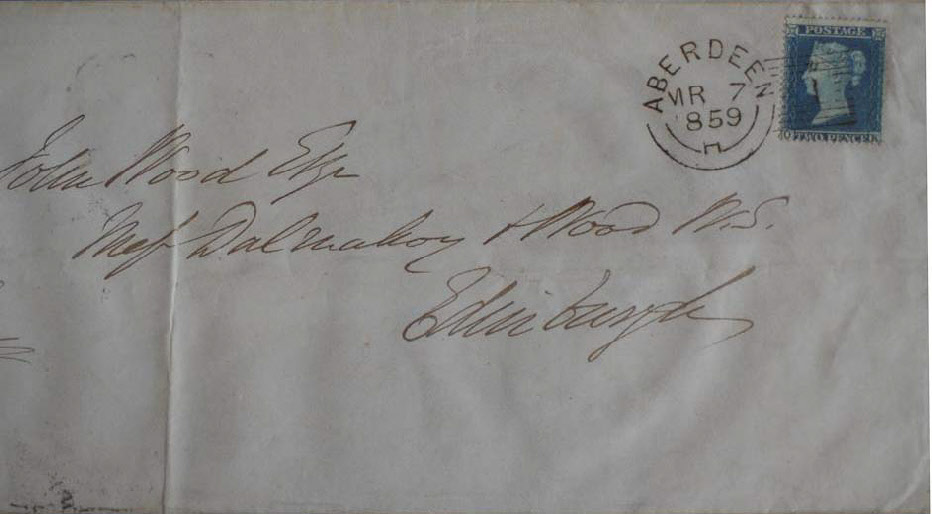 POSTAGE
TWO PENCE
ABERDEEN
MR 7
859
John Wood Esqr
Mess Dalmahoy & Wood W.S.
Edinburgh